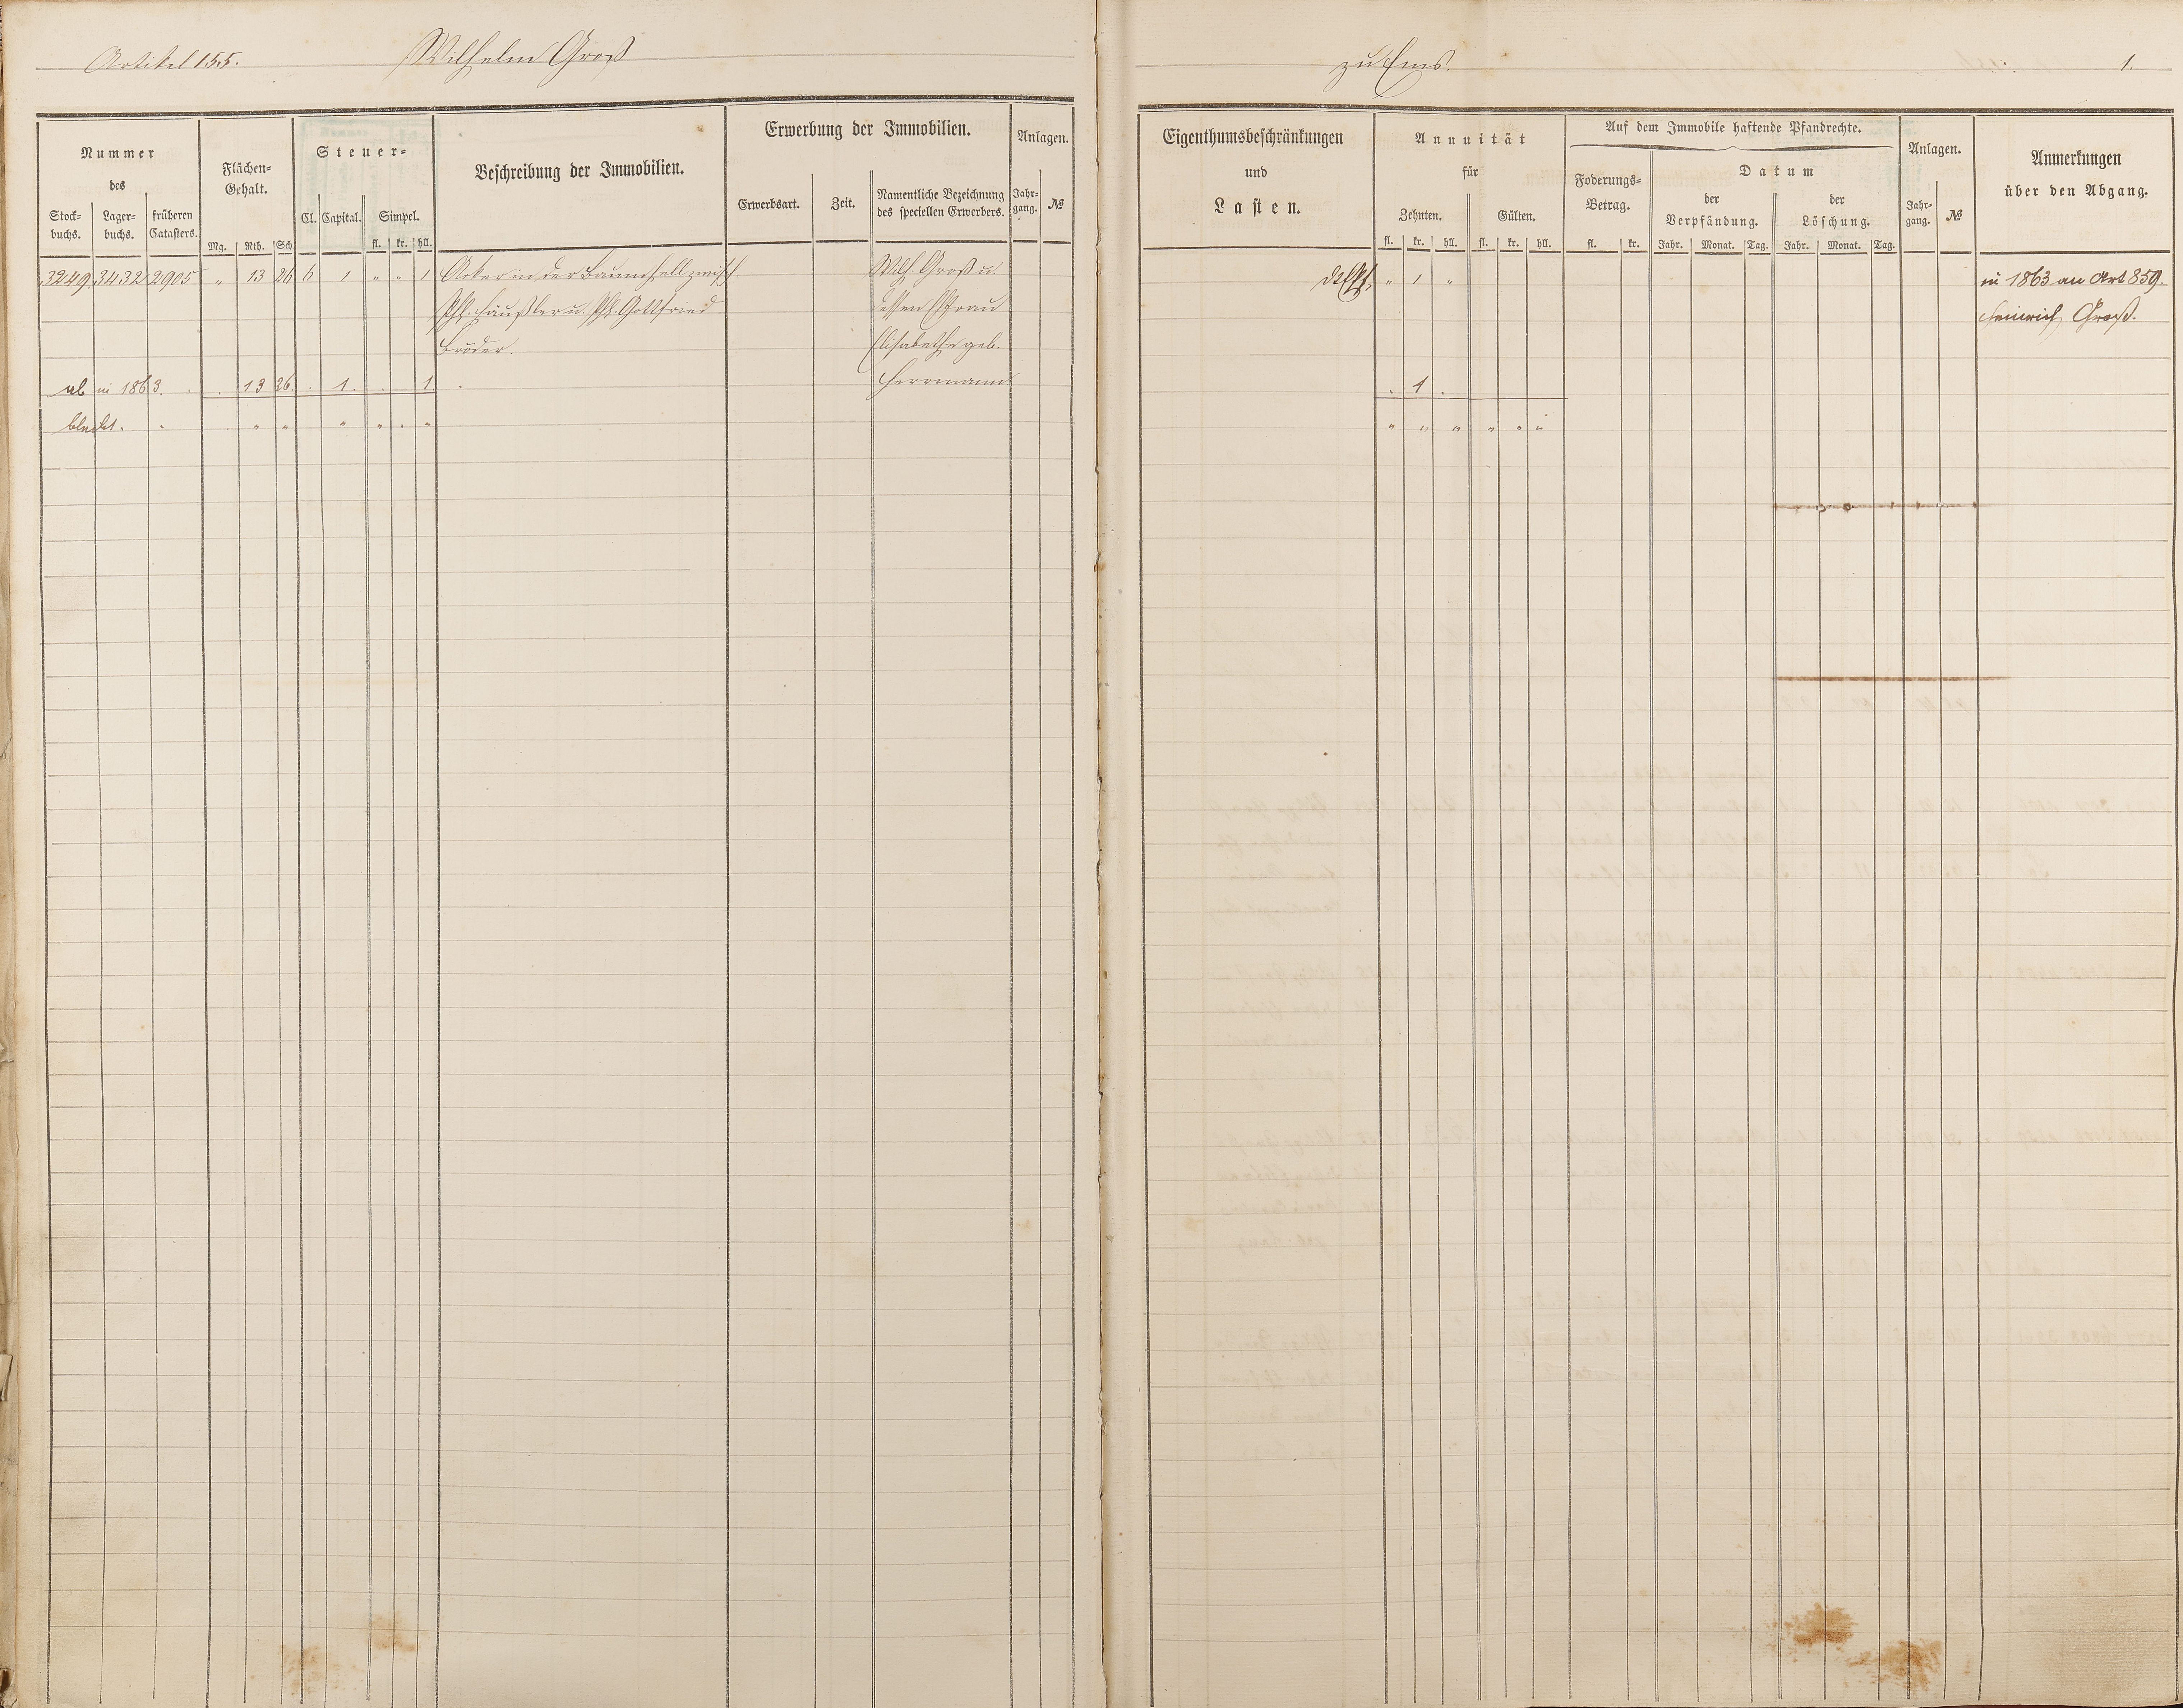 Artikel 155. Wilhelm Groß zu Ems. 1.
Nummer des
Stock= buchs. Lager= buchs. früheren Catasters.
Flächen= Gehalt.
Mg. Rth. Sch
Steuer=
Cl. Capital. Simpel.
fl. kr. hll.
Beschreibung der Immobilien.
Erwerbung der Immobilien.
Erwerbsart. Zeit. Namentliche Bezeichnung des speciellen Erwerbers.
Anlagen.
Jahr= gang. №
Eigenthumsbeschränkungen
und
Lasten.
Annuität
für
Zehnten. Gülten.
fl. kr. hll. fl. kr. hll.
Auf dem Immobile haftende Pfandrechte.
Foderungs= Betrag.
fl. kr.
Datum
der Verpfändung. der Löschung.
Jahr. Monat. Tag. Jahr. Monat. Tag.
Anlagen.
Jahr= gang. №
Anmerkungen
über den Abgang.
3249 3432 2905 " 13 26 6 1 " " 1 Acker in der zwisch. Wilh. Groß u. " 1 " in 1863 an Art 859.
Ph. Häußler u. Ph. Gottfried dessen Efrau Heinrich Groß.
Bröder. Elisabethe geb.
ab in 1863. . 13 26 . 1. . 1. Herrmann . 1 .
bleibt. " " " " " " " " " " " " "